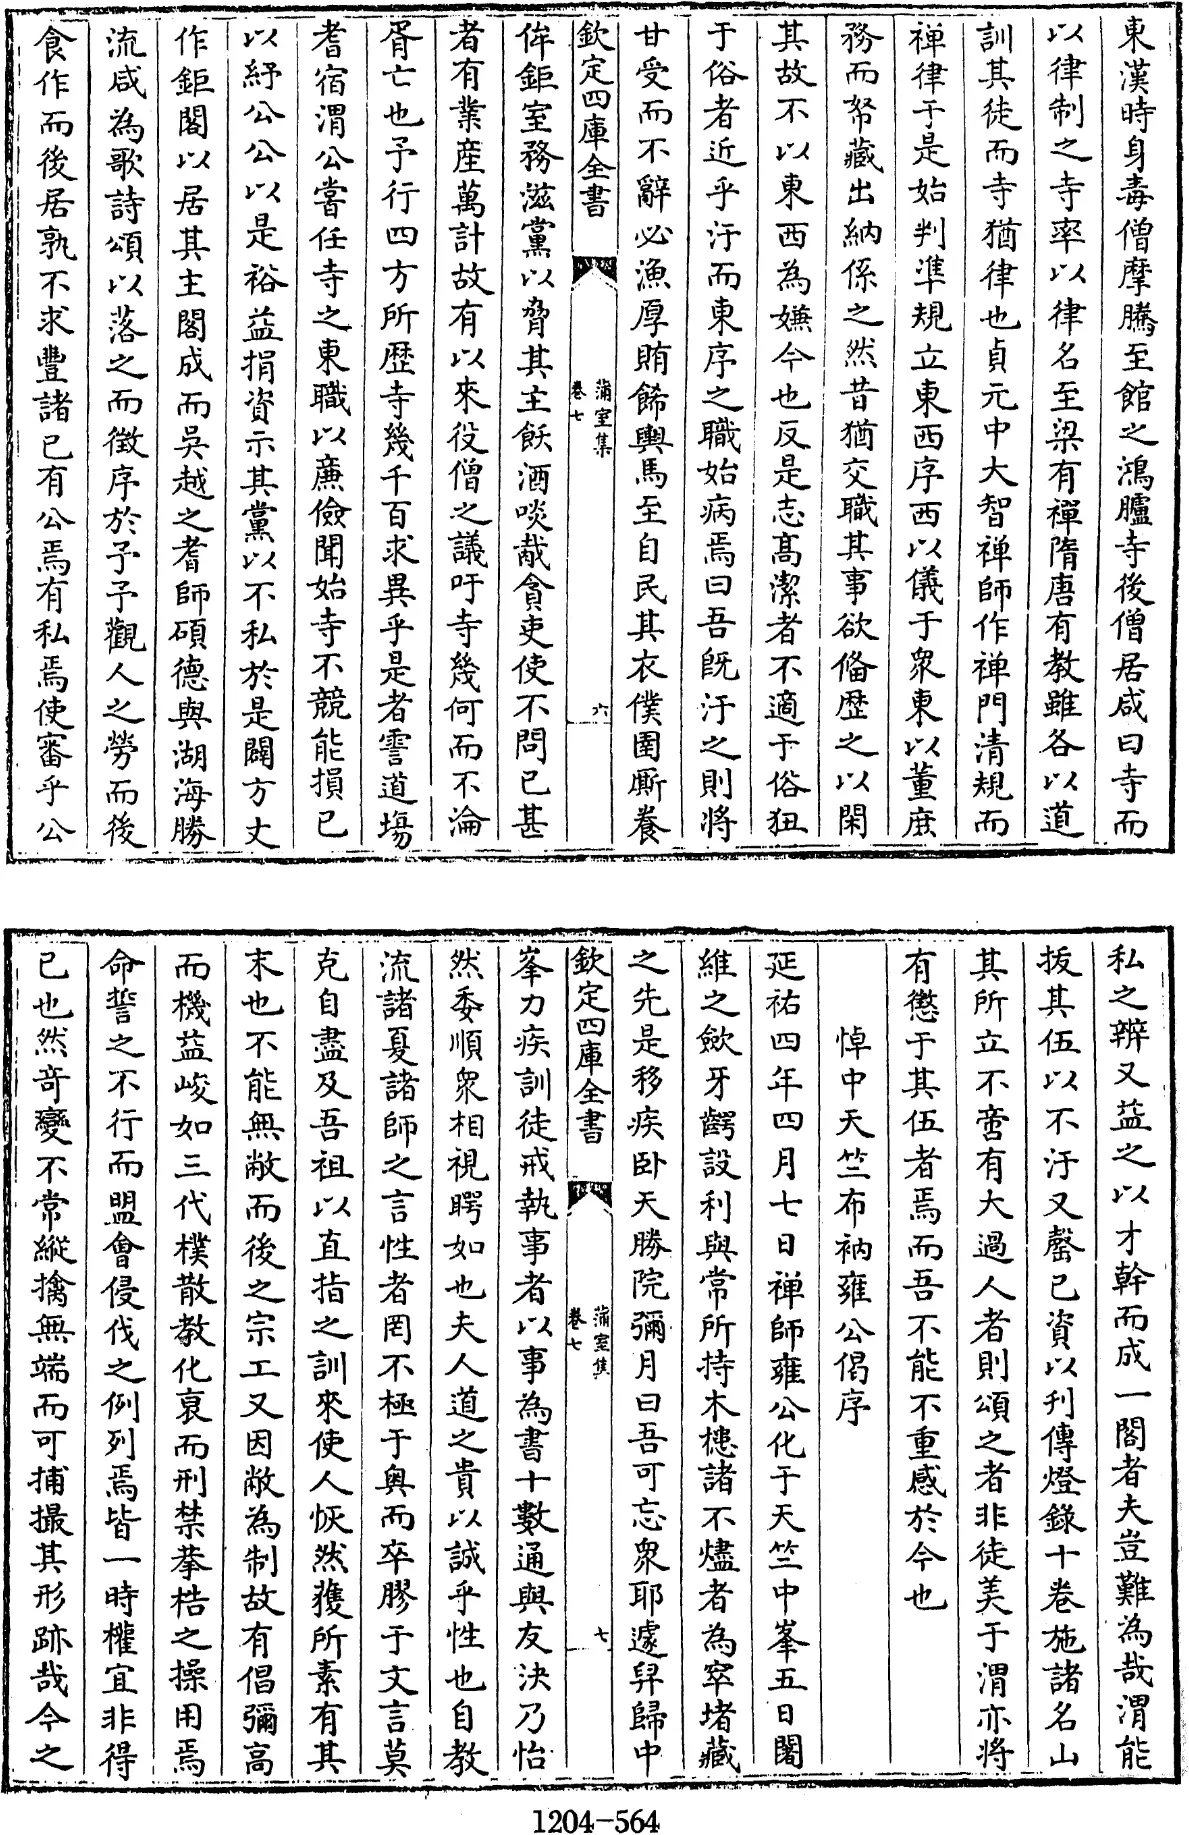 東漢時身毒僧摩騰至館之鴻臚寺後僧居咸曰寺而
以律制之寺率以律名至梁有禪隋唐有教雖各以道
訓其徒而寺猶律也貞元中大智禪師作禅門清規而
禅律于是始判準規立東西序西以儀于眾東以董庶
務而帑藏出納係之然昔猶交職其事欲偹歴之以閑
其故不以東西為嫌今也反是志髙潔者不適于俗狃
于俗者近乎汙而東序之職始病焉曰吾旣汙之則將
甘受而不辭必漁厚賄餙輿馬至自民其衣僕圉厮養
欽定四庫全書
蒲室集
卷七
六
侔鉅室務滋黨以脅其主飫酒啖胾貪吏使不問已甚
者有業産萬計故有以來役僧之議吁寺幾何而不淪
胥亡也予行四方所歴寺幾千百求異乎是者霅道塲
耆宿渭公嘗任寺之東職以亷儉聞始寺不競能損已
以紓公公以是裕益捐資示其黨以不私於是闢方丈
作鉅閣以居其主閣成而吳越之耆師碩德與湖海勝
流咸為歌詩頌以落之而徵序於予予觀人之勞而後
食作而後居孰不求豐諸已有公焉有私焉使審乎公
私之辨又益之以才幹而成一閣者夫豈難為哉渭能
拔其伍以不汙又罄已資以刋傳燈錄十卷施諸名山
其所立不啻有大過人者則頌之者非徒美于渭亦將
有懲于其伍者焉而吾不能不重感於今也
悼中天竺布衲雍公偈序
延祐四年四月七日禅師雍公化于天竺中峯五日闍
維之歛牙齶設利與常所持木槵諸不燼者為窣堵藏
之先是移疾卧天勝院彌月曰吾可忘衆耶遽舁歸中
欽定四庫全書
蒲室集
卷七
七
峯力疾訓徒戒執事者以事為書十數通與友決乃怡
然委順衆相視愕如也夫人道之貴以誠乎性也自教
流諸夏諸師之言性者罔不極于奧而卒膠于文言莫
克自盡及吾祖以直指之訓來使人恢然獲所素有其
末也不能無敝而後之宗工又因敝為制故有倡彌高
而機益峻如三代樸散教化衰而刑禁拲梏之操用焉
命誓之不行而盟會侵伐之例列焉皆一時權宜非得
已也然奇變不常縱擒無端而可捕撮其形跡哉今之
1204-564